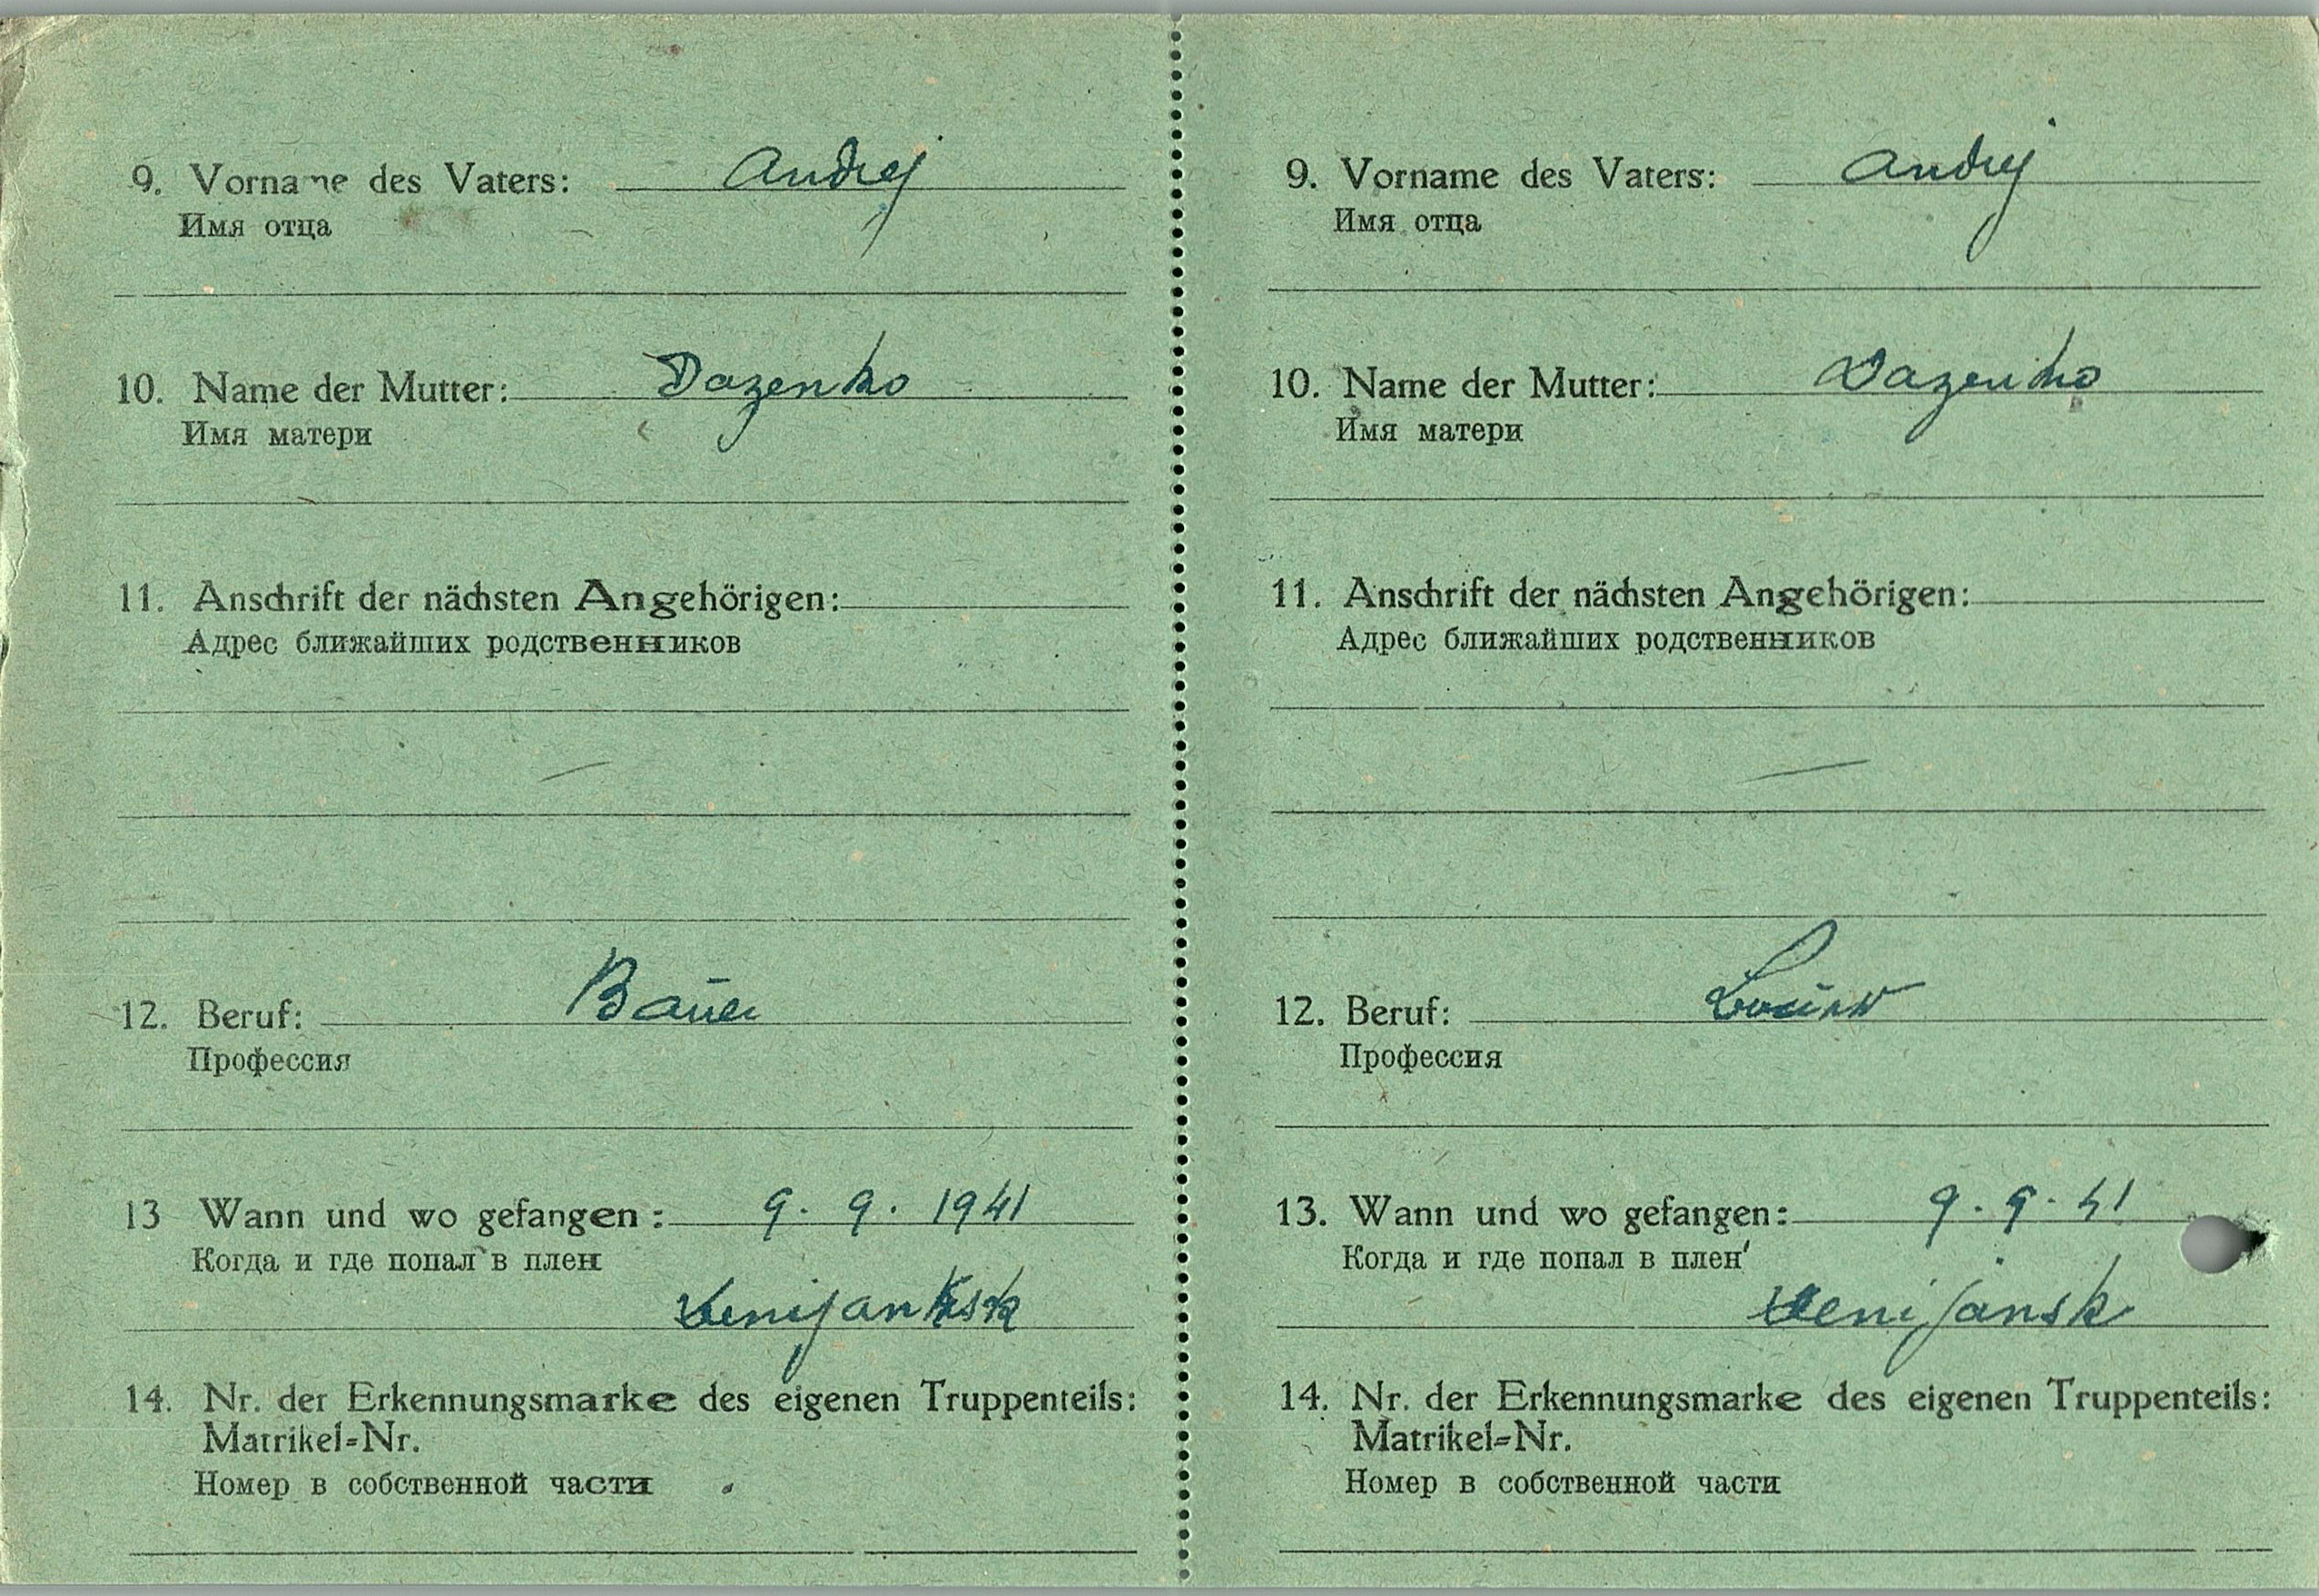 9. Vorname des Vaters: Andrej
Имя отца
10. Name der Mutter: Dazenko
Имя матери
11. Anschrift der nächsten Angehörigen:
Адрес ближайших родственников
—
12. Beruf: Bauer
Профессия
13 Wann und wo gefangen: 9. 9. 1941
Когда и где попал в плен
14. Nr. der Erkennungsmarke des eigenen Truppenteils:
Matrikel=Nr.
Номер в собственной части
9. Vorname des Vaters: Andrej
Имя отца
10. Name der Mutter: Dazenko
Имя матери
11. Anschrift der nächsten Angehörigen:
Адрес ближайших родственников
—
12. Beruf: Bauer
Профессия
13. Wann und wo gefangen: 9. 9. 41
Когда и где попал в плен
14. Nr. der Erkennungsmarke des eigenen Truppenteils:
Matrikel=Nr.
Номер в собственной части